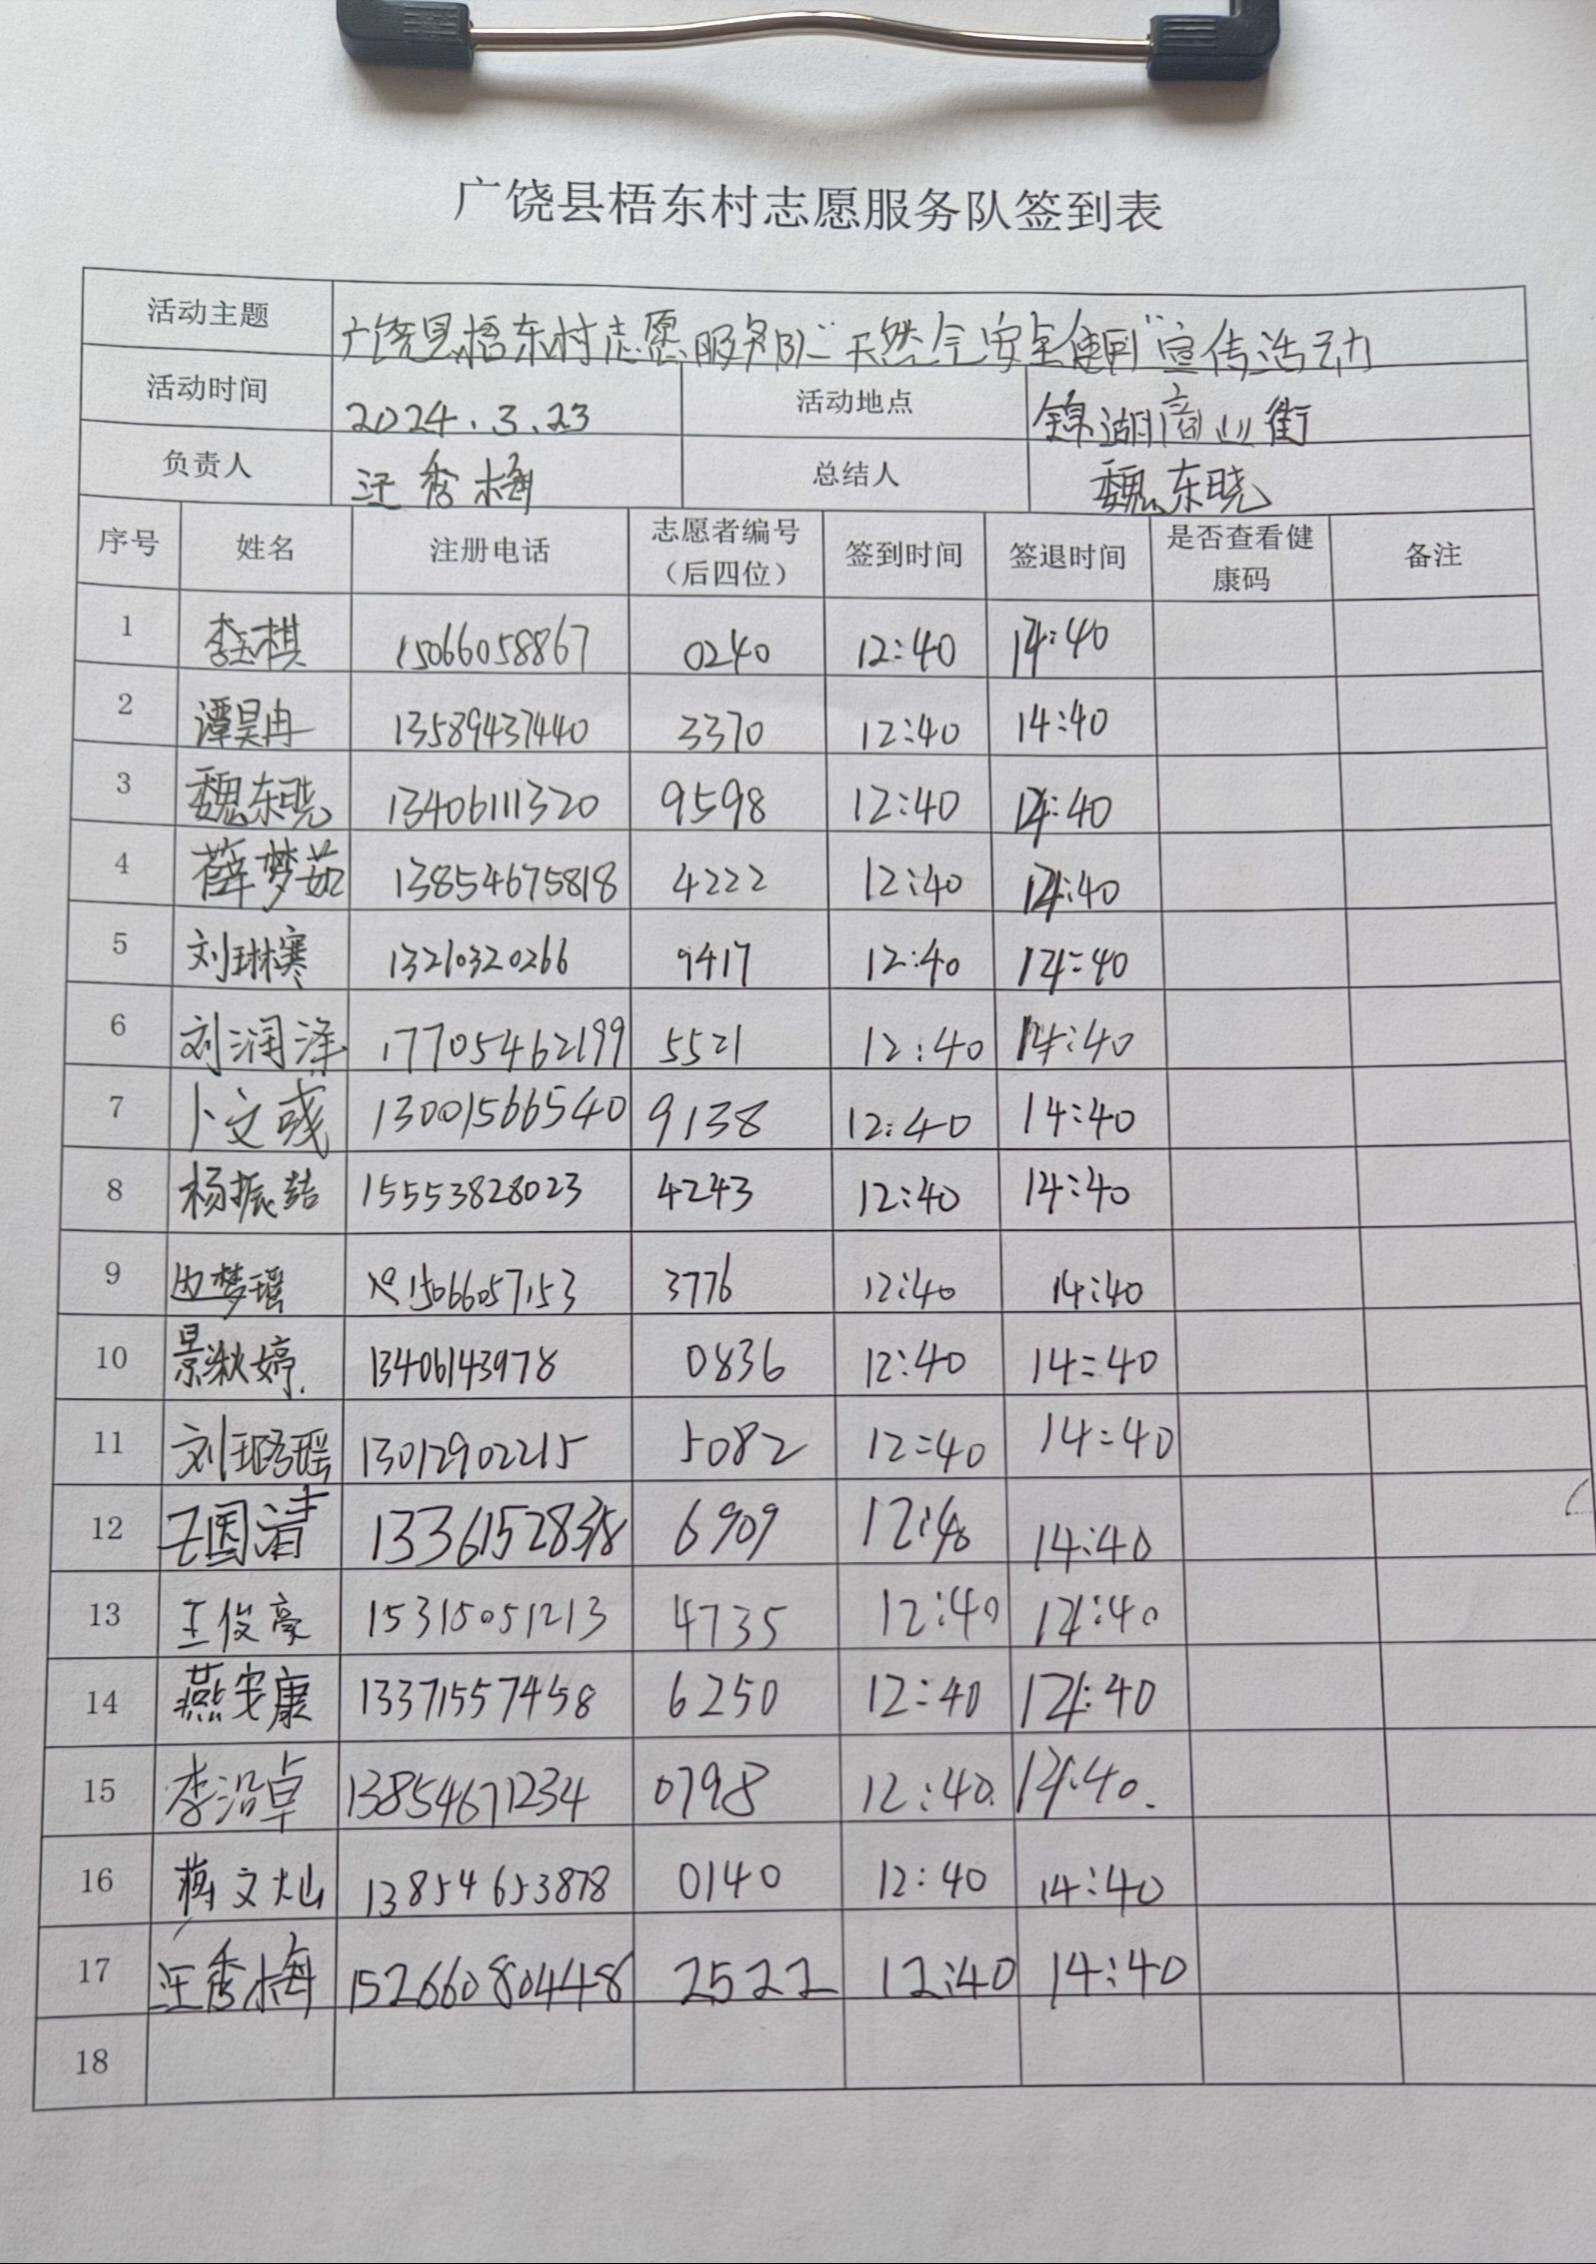 广饶县梧东村志愿服务队签到表
活动主题 广饶县梧东村志愿服务队“天然气安全使用”宣传活动
活动时间 2024.3.23 活动地点 锦湖商业街
负责人 汪秀梅 总结人 魏东晓
序号 姓名 注册电话 志愿者编号（后四位） 签到时间 签退时间 是否查看健康码 备注
1 李玉棋 15066058867 0240 12:40 14:40
2 谭昊冉 13589437440 3370 12:40 14:40
3 魏东晓 13406111320 9598 12:40 14:40
4 薛梦茹 13854675818 4222 12:40 14:40
5 刘琳寒 13210320266 9417 12:40 14:40
6 刘润泽 17705462199 5521 12:40 14:40
7 卜文彧 13001566540 9138 12:40 14:40
8 杨振喆 15553828023 4243 12:40 14:40
9 边梦瑶 15066057153 3776 12:40 14:40
10 景湫婷 13406143978 0836 12:40 14:40
11 刘璐瑶 13012902215 5082 12:40 14:40
12 王国清 6909 12:40 14:40
13 王俊豪 15315051213 4735 12:40 14:40
14 燕安康 13371557458 6250 12:40 14:40
15 李沿卓 13854671234 0798 12:40 14:40
16 蒋文灿 13854653878 0140 12:40 14:40
17 汪秀梅 15266080448 2522 12:40 14:40
18